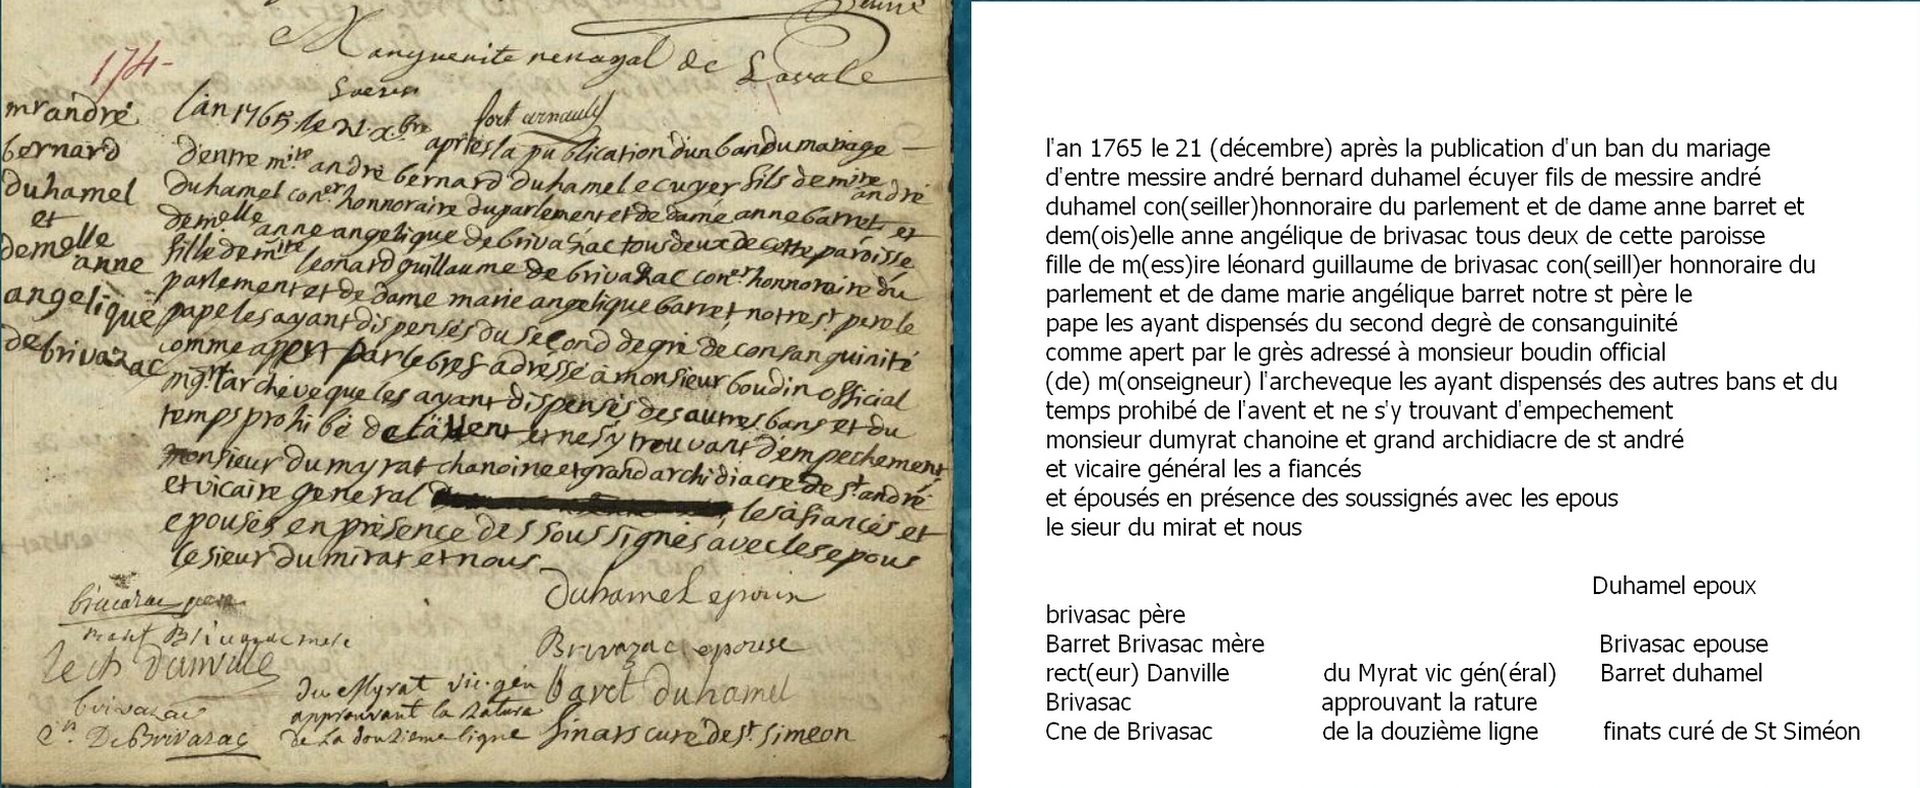 Marguerite renagal de Lavale
174-
fort arnauld
mr andré
bernard
duhamel
et
demelle
anne
angelique
de brivazac
lan 1765 le 21 xbre après la publication dun ban du mariage
dentre mire andré bernard duhamel ecuyer fils de mire andré
duhamel coner honnoraire du parlement et de dame anne barret et
demelle anne angelique de brivazac tous deux de cette paroisse
fille de mire leonard guillaume de brivazac coner honnoraire du
parlement et de dame marie angelique barret notre st pere le
pape les ayant dispensés du second degré de consanguinité
comme apert par le bref adressé à monsieur boudin official
mgr larchevêque les ayant dispensés des autres bans et du
temps prohibé de lavent et ne sy trouvant dempechement
monsieur dumyrat chanoine et grand archidiacre de st andré
et vicaire general les a fiancés et
epousés en présence des soussignés avec les epous
le sieur du mirat et nous
Duhamel epoux
brivazac pere
Barret Brivazac mere
Brivazac epouse
Le ch Danville
du Myrat vic. gén
baret duhamel
brivazac
approuvant la rature
De Brivazac
de la douzieme ligne
finats curé de st simeon
l'an 1765 le 21 (décembre) après la publication d'un ban du mariage
d'entre messire andré bernard duhamel écuyer fils de messire andré
duhamel con(seiller)honnoraire du parlement et de dame anne barret et
dem(ois)elle anne angélique de brivasac tous deux de cette paroisse
fille de m(ess)ire léonard guillaume de brivasac con(seill)er honnoraire du
parlement et de dame marie angélique barret notre st père le
pape les ayant dispensés du second degrè de consanguinité
comme apert par le grès adressé à monsieur boudin official
(de) m(onseigneur) l'archeveque les ayant dispensés des autres bans et du
temps prohibé de l'avent et ne s'y trouvant d'empechement
monsieur dumyrat chanoine et grand archidiacre de st andré
et vicaire général les a fiancés
et épousés en présence des soussignés avec les epous
le sieur du mirat et nous
Duhamel epoux
brivasac père
Barret Brivasac mère Brivasac epouse
rect(eur) Danville du Myrat vic gén(éral) Barret duhamel
Brivasac approuvant la rature
Cne de Brivasac de la douzième ligne finats curé de St Siméon